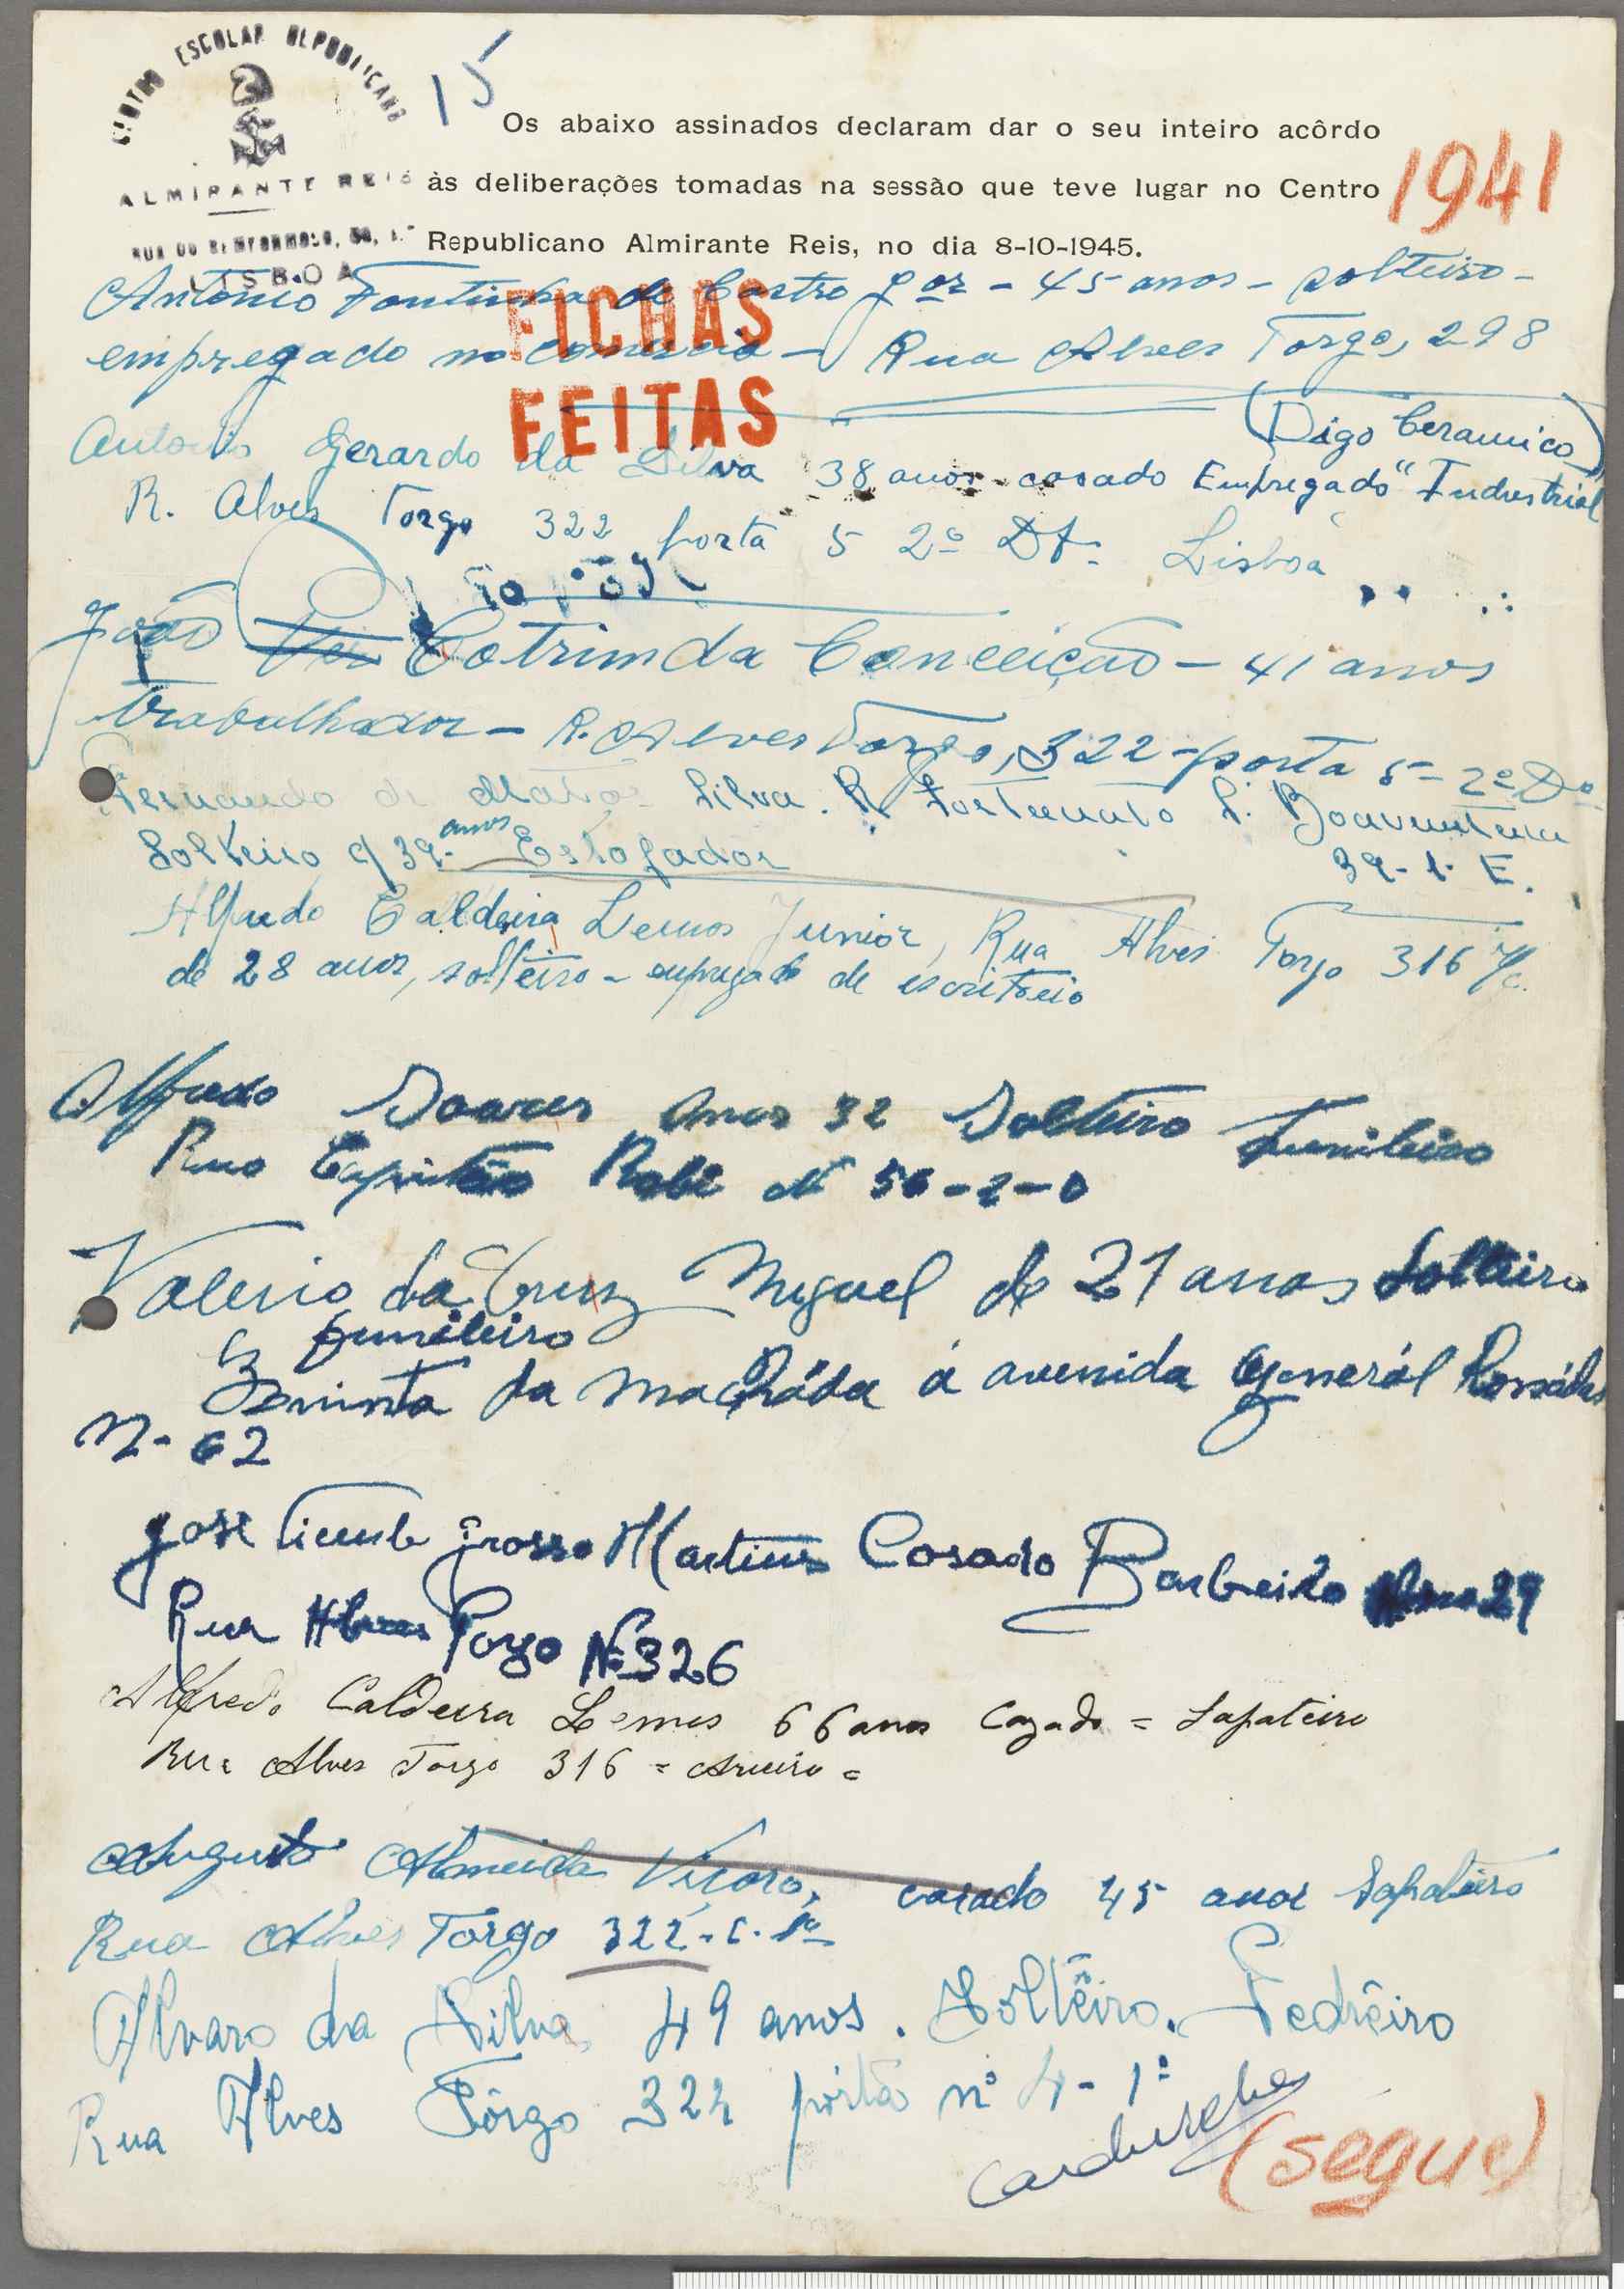 CENTRO ESCOLAR REPUBLICANO
ALMIRANTE REIS
RUA DO BEMFORMOSO, 50, 1.º
LISBOA
15
Os abaixo assinados declaram dar o seu inteiro acôrdo
às deliberações tomadas na sessão que teve lugar no Centro
Republicano Almirante Reis, no dia 8-10-1945.
1941
FICHAS
FEITAS
Antonio Fontinha de Castro Jor - 45 anos - solteiro -
empregado no comercio - Rua Alves Torgo, 298
(Digo Ceramico)
Antonio Gerardo da Silva 38 anos - casado Empregado "Industrial"
R. Alves Torgo 322 porta 5 2º Dt. Lisboa
João Cotrim da Conceição - 41 anos
trabulhador - R. Alves Torgo, 322 - porta 5 - 2º Dº
Fernando de Matos Silva. R. Fortunato S. Boaventura
39 - 1. E.
Solteiro c/ 39 - anos Estofador
Alfredo Caldeira Lemos Junior, Rua Alves Torgo 316 r/c.
de 28 anos, solteiro - empregado de escritorio
Alfredo Soares Anos 32 Solteiro Funileiro
Rua Capitão Robi Nº 56 - 2 - D
Valerio da Cruz Miguel de 21 anos solteiro
funileiro
da Macháda á avenida General Rossádas
N. 62
José Vicente Grosso Martins Casado Barbeiro Anos 29
Rua Alves Torgo Nº 326
Alfredo Caldeira Lemos 66 anos Cazado = Sapateiro
Rua Alves Torgo 316 = Arieiro =
Augusto Almeida Vicoro, casado 45 anos Sapateiro
Rua Alves Torgo 322 - C.
Alvaro da Silva 49 anos. Sôltêiro. Pedrêiro
Rua Alves Tôrgo 322 pórta nº 4 - 1º
(segue)